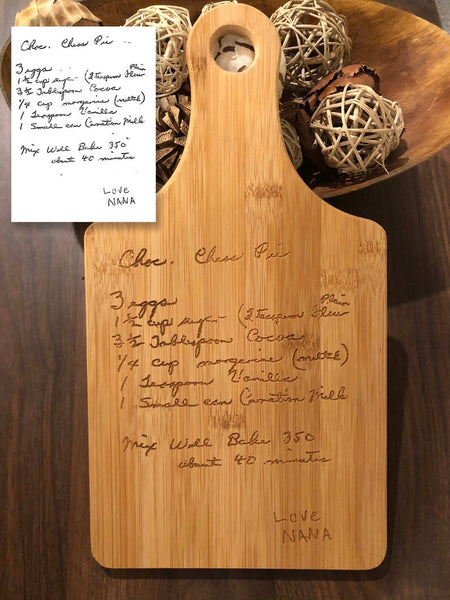 Choc. Chess Pie
3 eggs
Plain
1 ½ cup sugar (2 Teaspoon Flour
3 ½ Tablespoon Cocoa
1/4 cup margarine (melted)
1 Teaspoon Vanilla
1 Small can Carnation Milk
Mix Well Bake 350°
about 40 minutes
LOVE
NANA
Choc. Chess Pie
3 eggs
Plain
1 ½ cup sugar (2 Teaspoon Flour
3 ½ Tablespoon Cocoa
1/4 cup margarine (melted)
1 Teaspoon Vanilla
1 Small can Carnation Milk
Mix Well Bake 350
about 40 minutes
LOVE
NANA